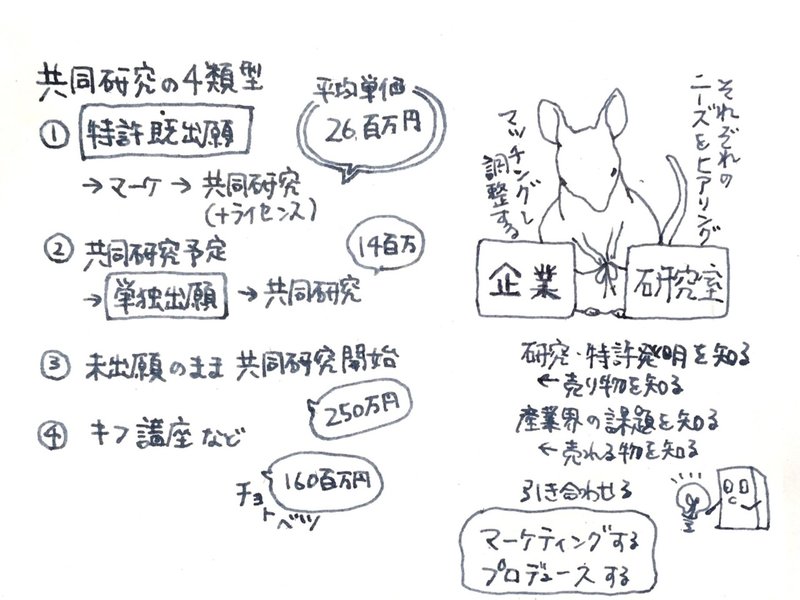 共同研究の4類型
① 特許既出願
平均単価
26.百万円
→マーケ→共同研究
(+ライセンス)
② 共同研究予定
14百万
→単独出願→共同研究
③ 未出願のまま共同研究開始
250万円
④ キフ講座など
160百万円
チョトベツ
それぞれの
ニーズをヒアリング
マッチングし
調整する
企業
研究室
研究・特許発明を知る
←売り物を知る
産業界の課題を知る
←売れる物を知る
引き合わせる
マーケティングする
プロデュースする